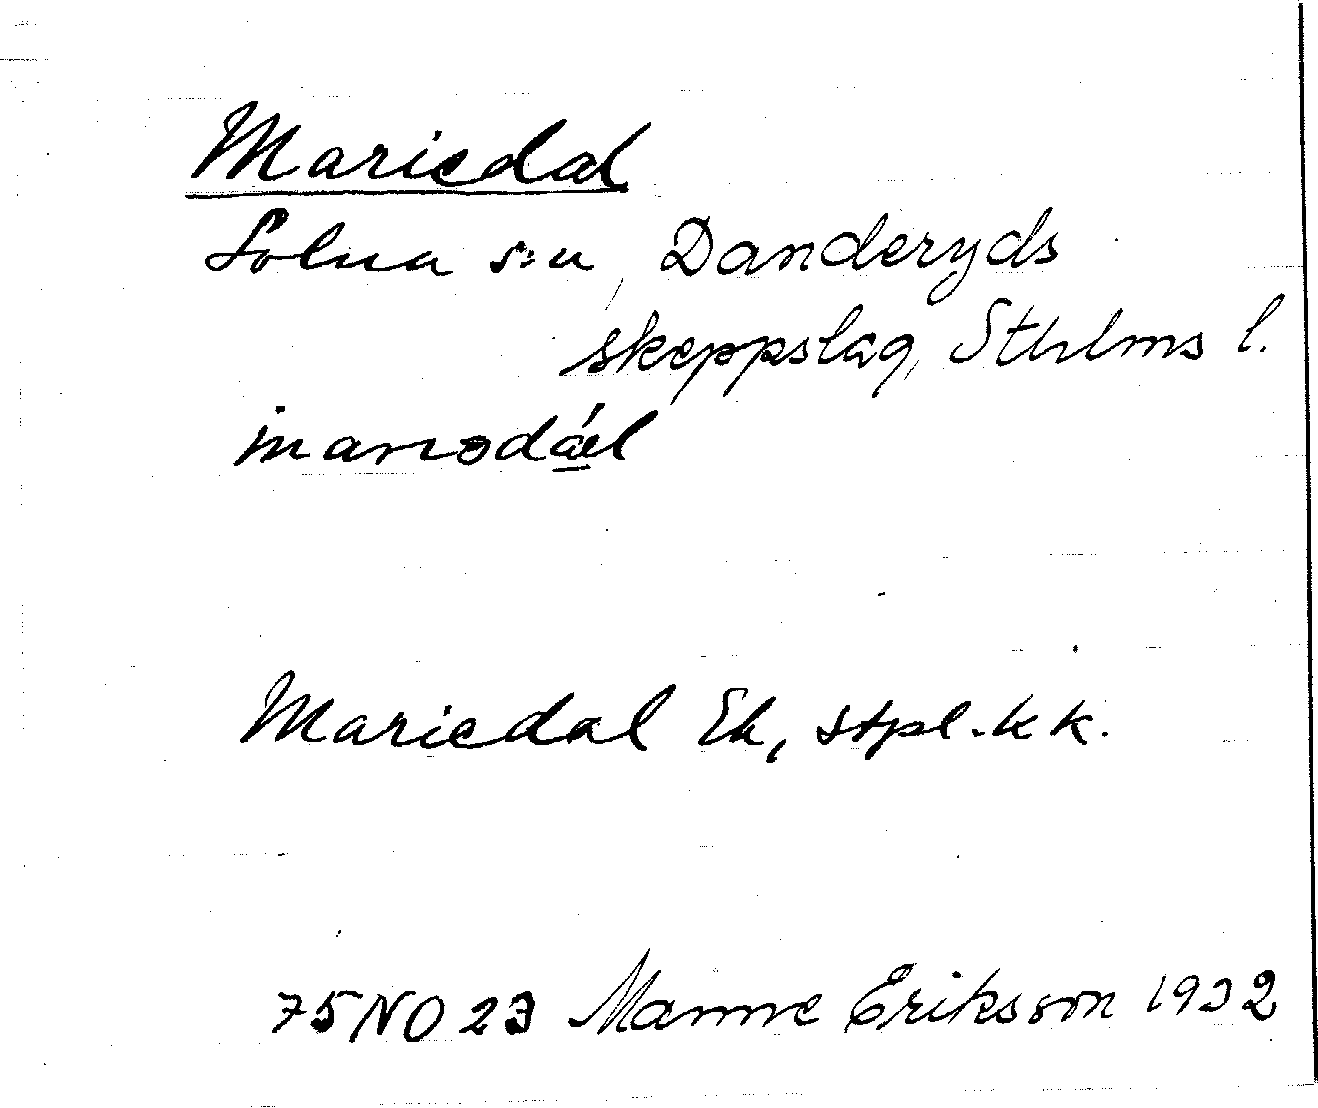 Mariedal
Solna sn, Danderyds
skeppslag, Sthlms l.
Mariedal Ek, stpl. kk.
75 NO 23 Manne Eriksson 1932